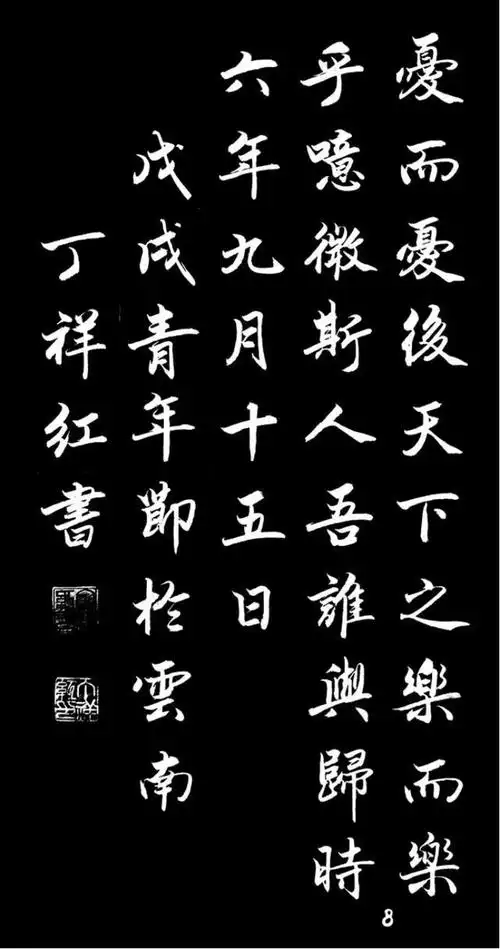 憂而憂後天下之樂而樂
乎噫微斯人吾誰與歸時
六年九月十五日
戊戌青年節於雲南
丁祥红書
8